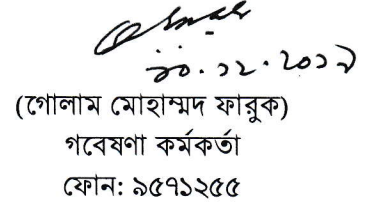 ১০.১২.২০১৯
(গোলাম মোহাম্মদ ফারুক)
গবেষণা কর্মকর্তা
ফোন: ৯৫৭১২৫৫